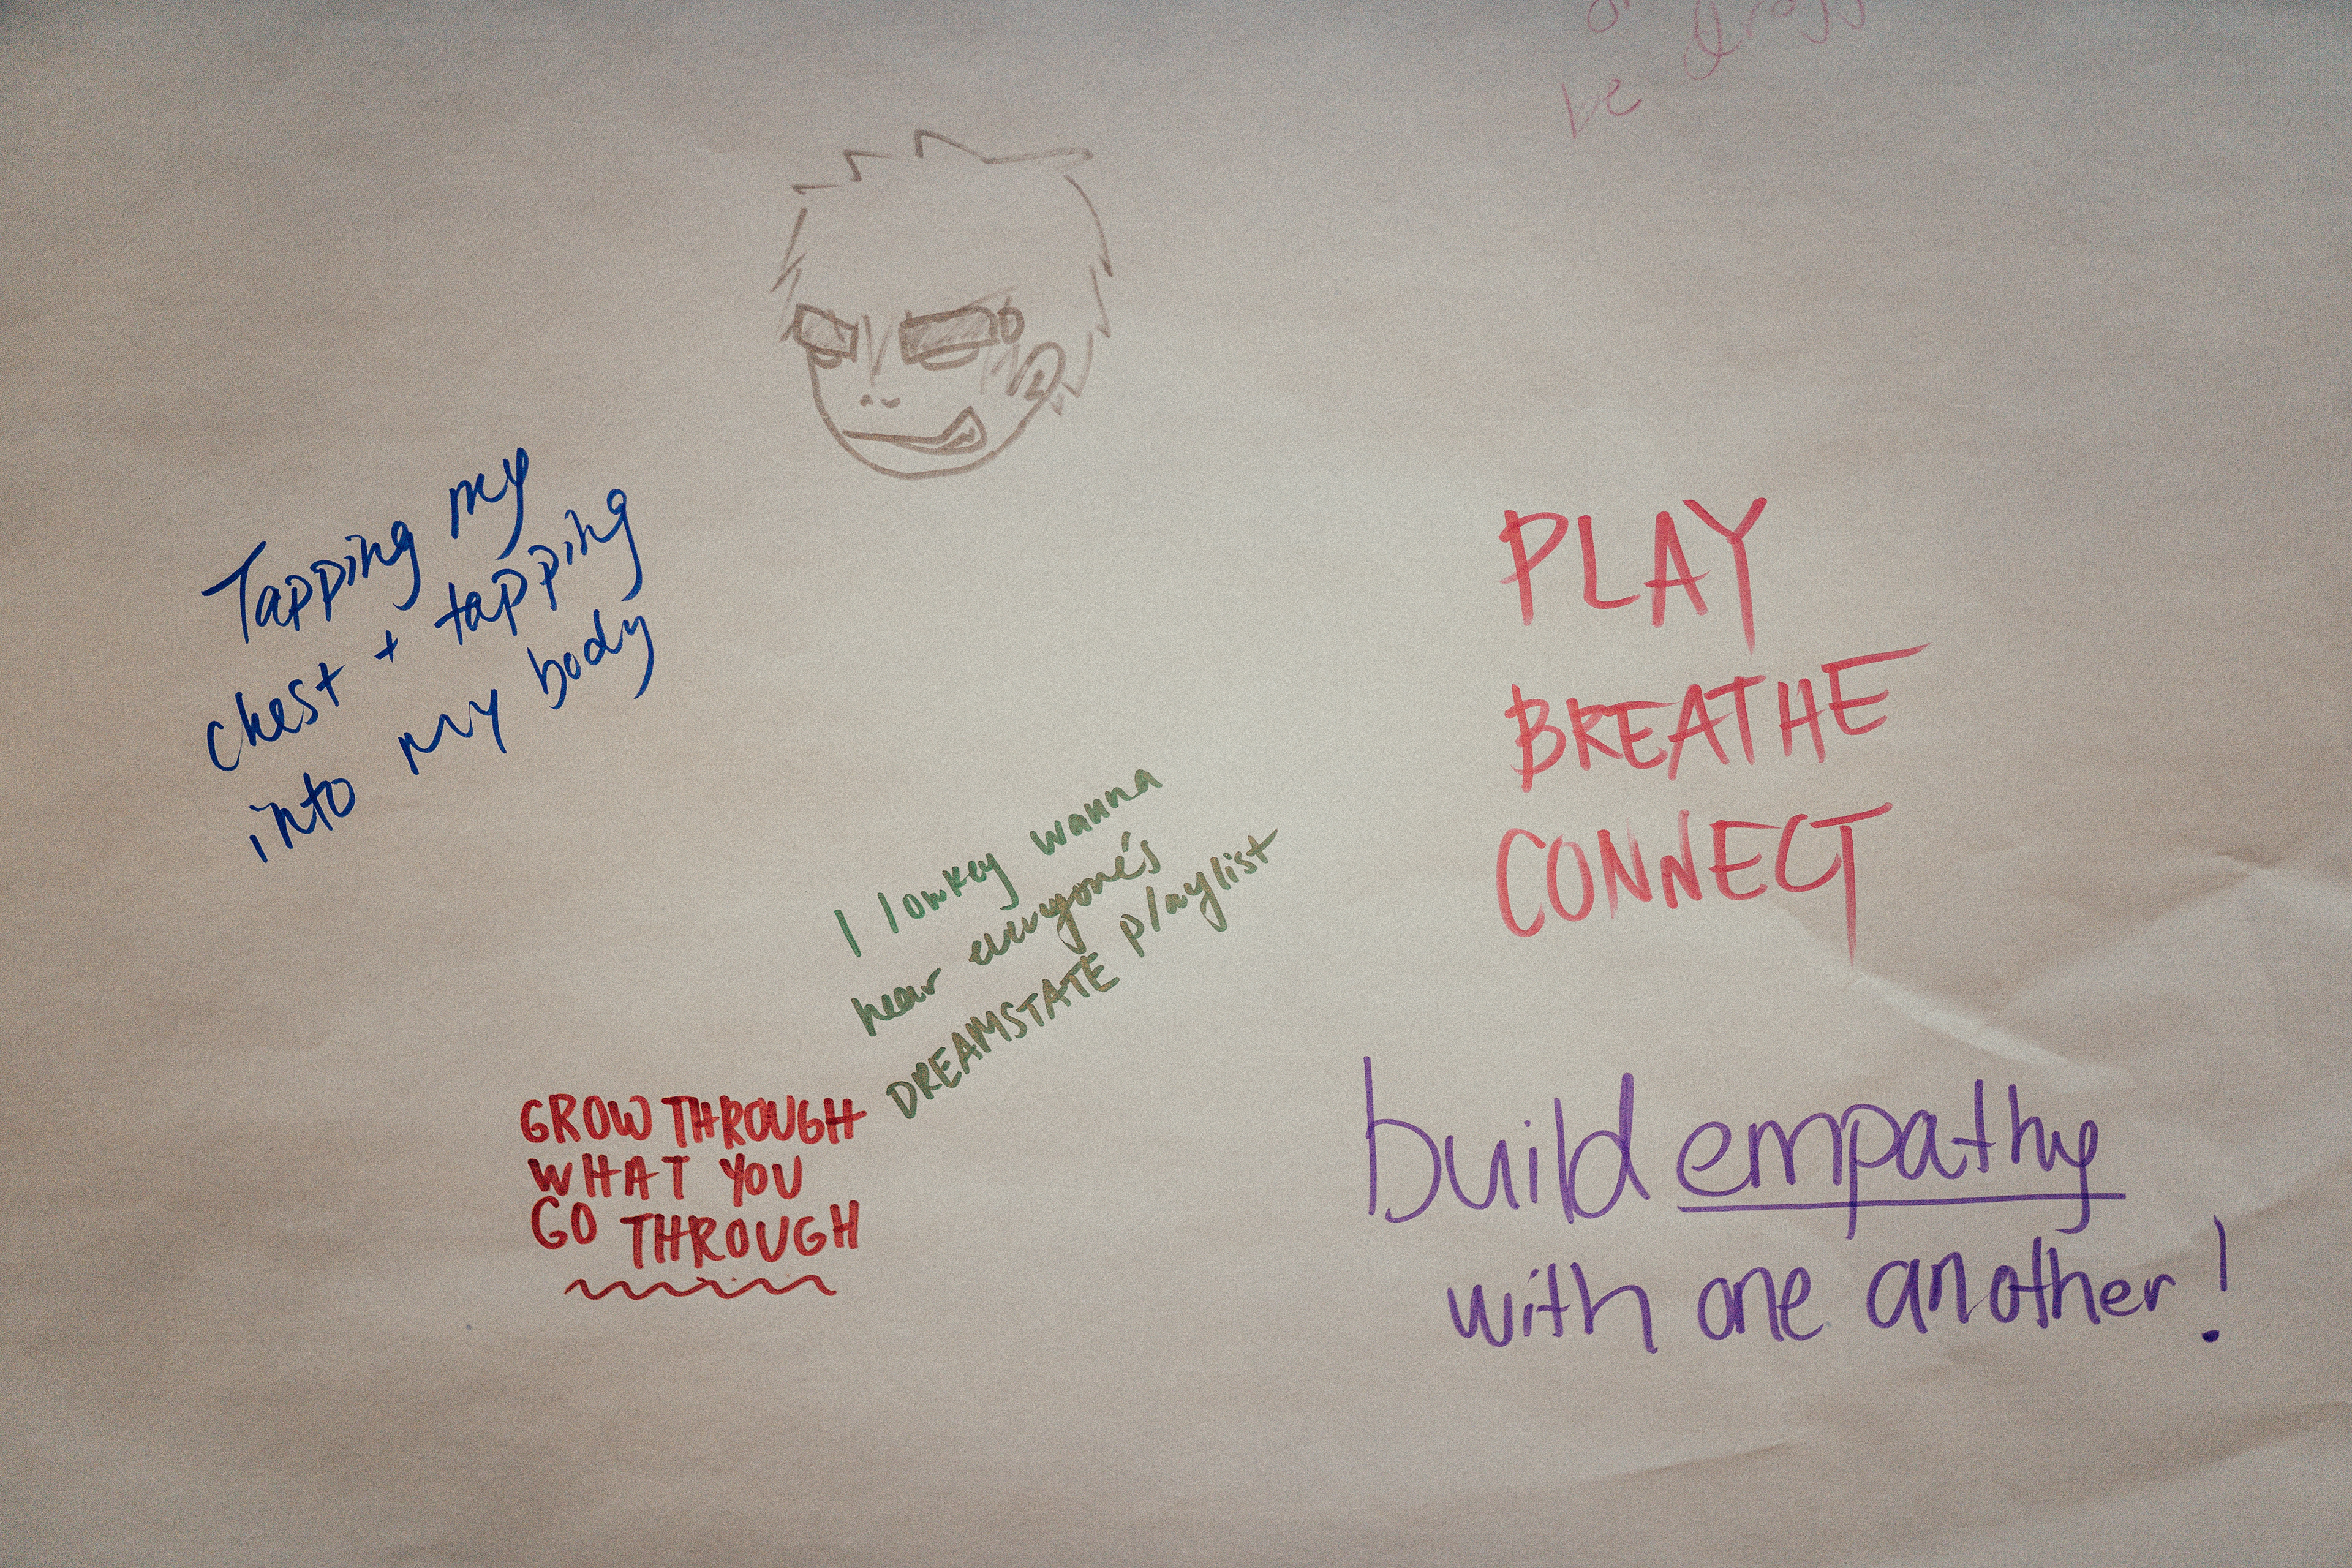 be
Tapping my
chest + tapping
into my body
PLAY
BREATHE
CONNECT
I lowkey wanna
hear everyone's
DREAMSTATE playlist
GROW THROUGH
WHAT YOU
GO THROUGH
build empathy
with one another!